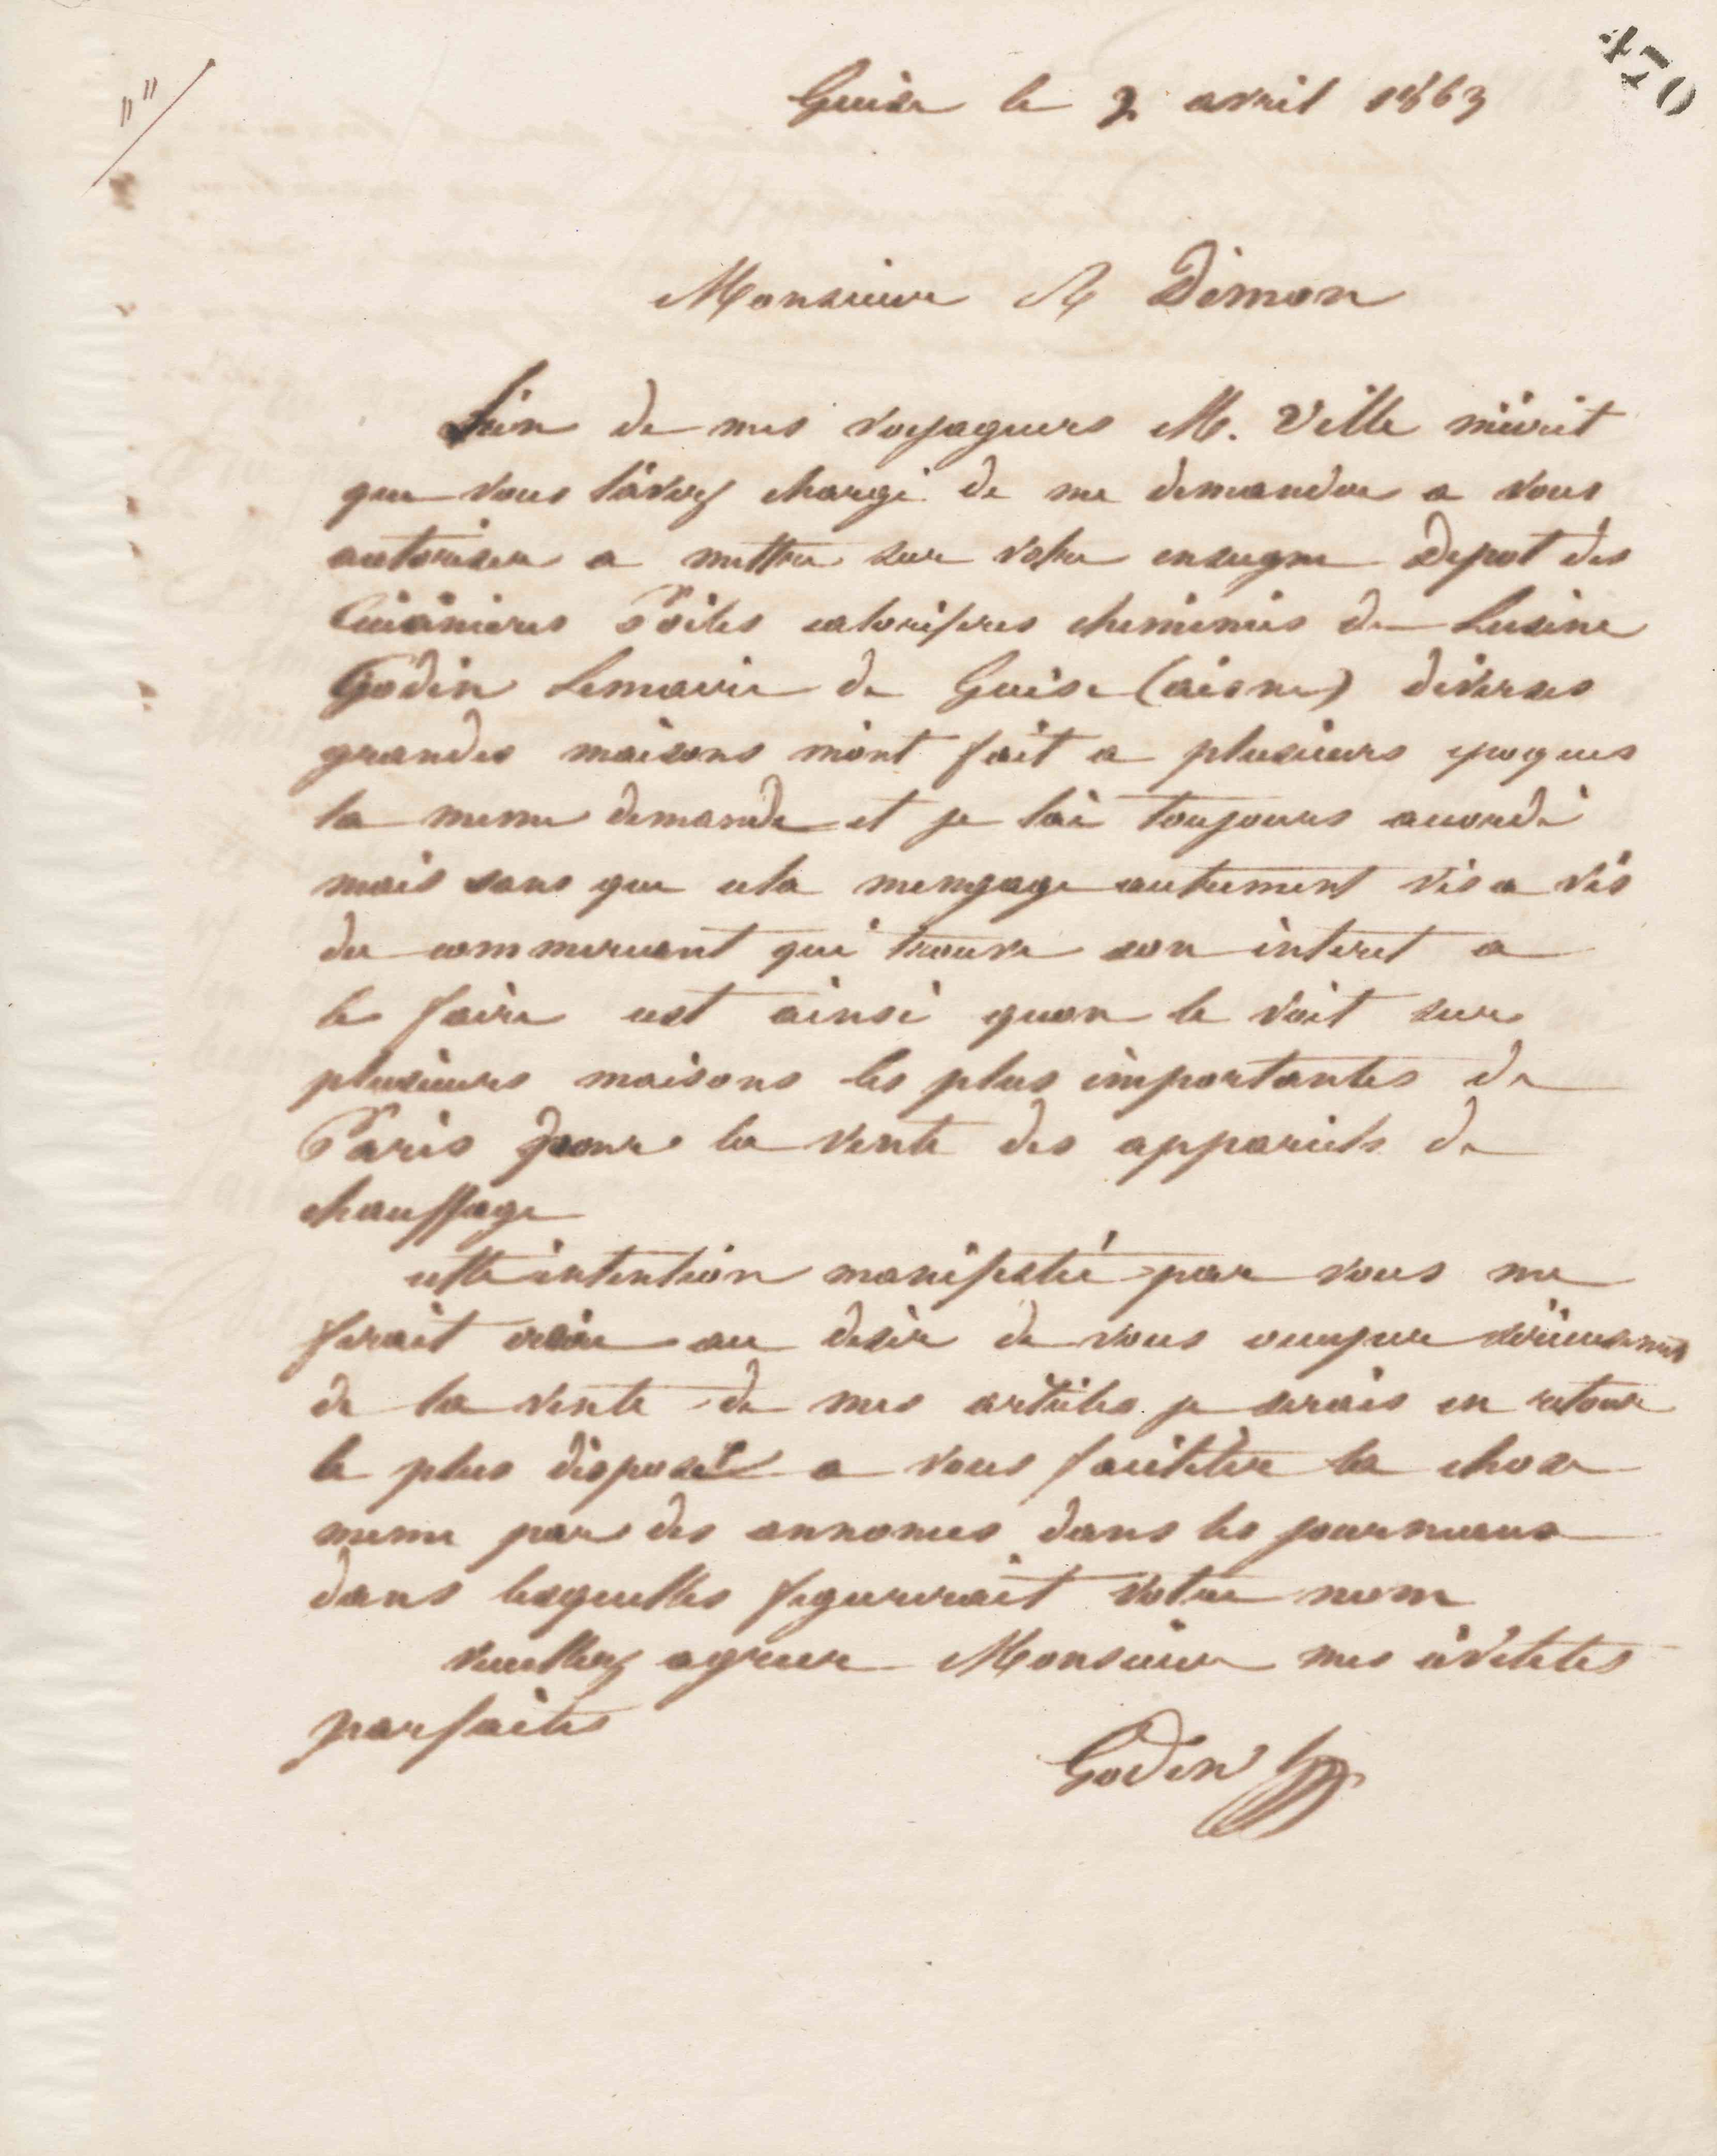 470
Guise le 2 avril 1863
Monsieur R Dimon
Lun de mes voyageurs M. Ville mécrit
que vous lavez chargé de me demander a vous
autoriser a mettre sur votre enseigne Depot des
Cuisinieres Poëles caloriferes cheminées de Lusine
Godin Lemaire de Guise (aisne) diverses
grandes maisons mont fait a plusieurs epoques
la meme demande et je lai toujours accordé
mais sans que cela mengage autrement vis a vis
du commercant qui trouve son interet a
le faire cest ainsi quon le voit sur
plusieurs maisons les plus importantes de
Paris pour la vente des appareils de
chauffage
cette intention manifestée par vous me
ferait croire au desir de vous occuper sérieusement
de la vente de mes articles je serais en retour
le plus disposé a vous faciliter la chose
meme par des annonces dans les journeaux
dans lesquelles figurerait votre nom
veuillez agreer Monsieur mes civilités
parfaites
Godin